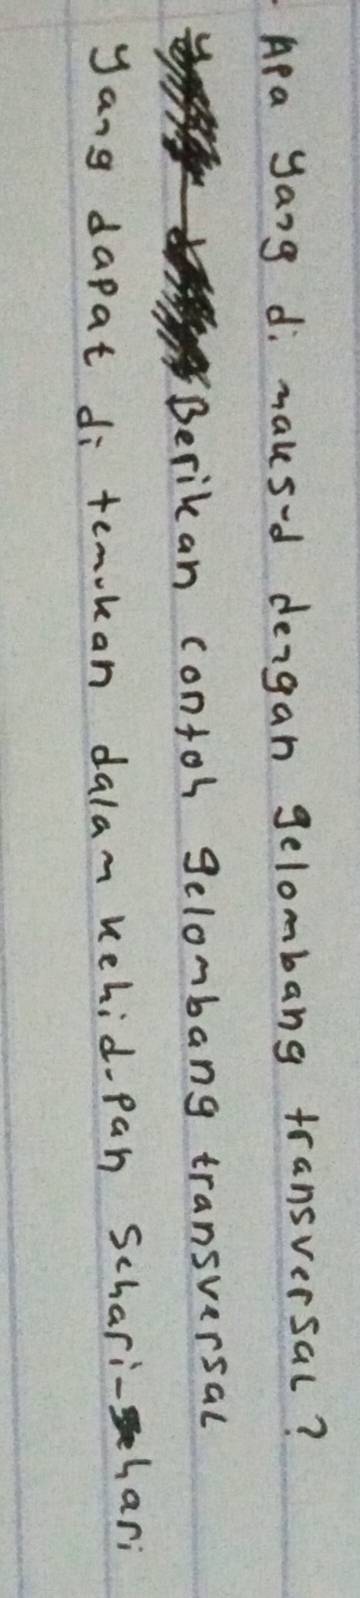 Apa yang di maksud dengan gelombang transversal?
Berikan contoh gelombang transversal
yang dapat di temukan dalam kehidupan sehari-sehari